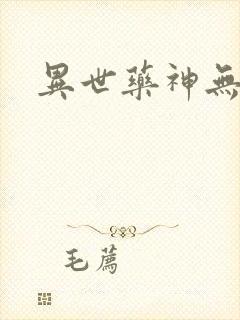 異世藥神無
毛薦